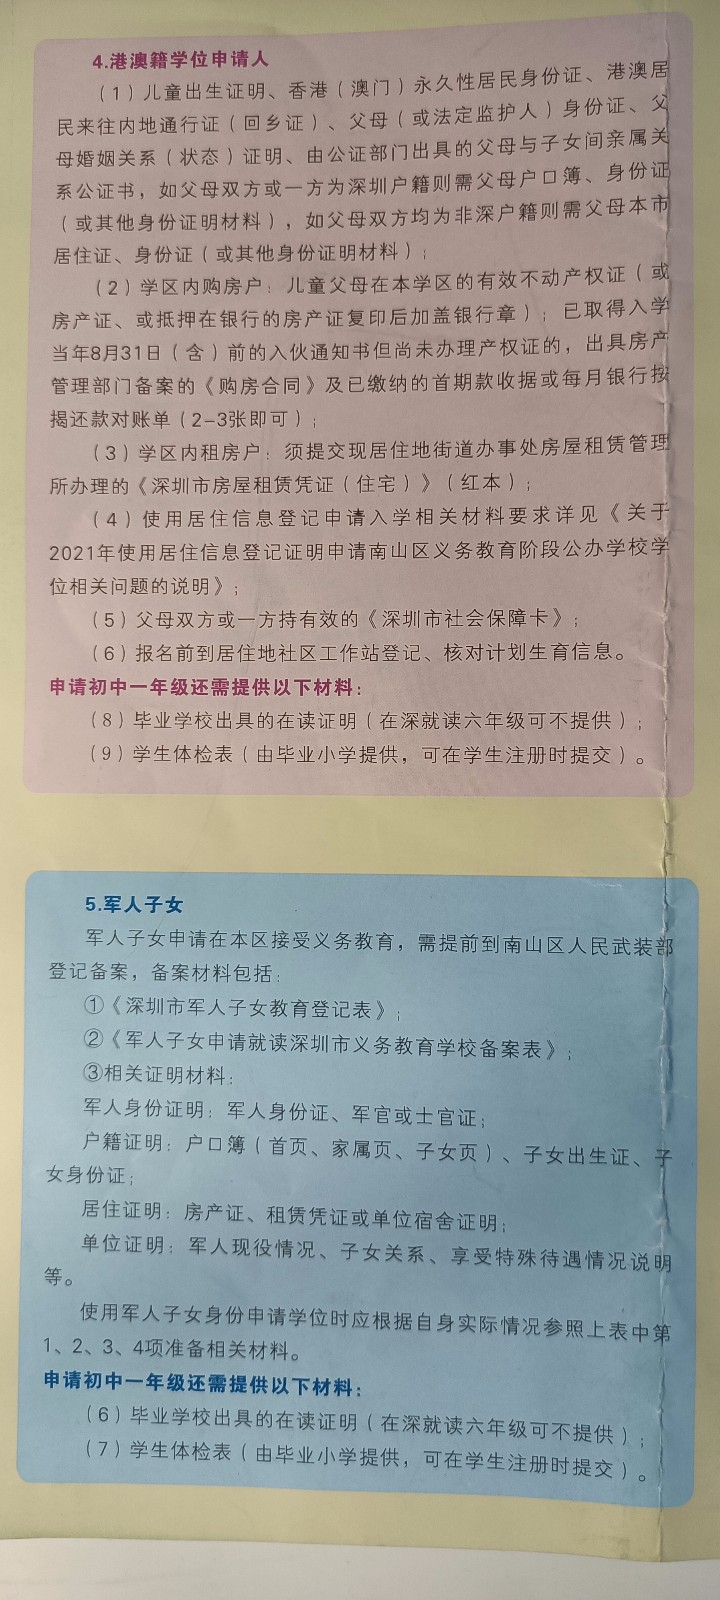 4.港澳籍学位申请人
（1）儿童出生证明、香港（澳门）永久性居民身份证、港澳居
民来往内地通行证（回乡证）、父母（或法定监护人）身份证、父
母婚姻关系（状态）证明、由公证部门出具的父母与子女间亲属关
系公证书，如父母双方或一方为深圳户籍则需父母户口簿、身份证
（或其他身份证明材料），如父母双方均为非深户籍则需父母本市
居住证、身份证（或其他身份证明材料）；
（2）学区内购房户：儿童父母在本学区的有效不动产权证（或
房产证、或抵押在银行的房产证复印后加盖银行章）；已取得入学
当年8月31日（含）前的入伙通知书但尚未办理产权证的，出具房产
管理部门备案的《购房合同》及已缴纳的首期款收据或每月银行按
揭还款对账单（2-3张即可）；
（3）学区内租房户：须提交现居住地街道办事处房屋租赁管理
所办理的《深圳市房屋租赁凭证（住宅）》（红本）；
（4）使用居住信息登记申请入学相关材料要求详见《关于
2021年使用居住信息登记证明申请南山区义务教育阶段公办学校学
位相关问题的说明》；
（5）父母双方或一方持有效的《深圳市社会保障卡》；
（6）报名前到居住地社区工作站登记、核对计划生育信息。
申请初中一年级还需提供以下材料：
（8）毕业学校出具的在读证明（在深就读六年级可不提供）；
（9）学生体检表（由毕业小学提供，可在学生注册时提交）。
5.军人子女
军人子女申请在本区接受义务教育，需提前到南山区人民武装部
登记备案，备案材料包括：
①《深圳市军人子女教育登记表》；
②《军人子女申请就读深圳市义务教育学校备案表》；
③相关证明材料：
军人身份证明：军人身份证、军官或士官证；
户籍证明：户口簿（首页、家属页、子女页）、子女出生证、子
女身份证；
居住证明：房产证、租赁凭证或单位宿舍证明；
单位证明：军人现役情况、子女关系、享受特殊待遇情况说明
等。
使用军人子女身份申请学位时应根据自身实际情况参照上表中第
1、2、3、4项准备相关材料。
申请初中一年级还需提供以下材料：
（6）毕业学校出具的在读证明（在深就读六年级可不提供）；
（7）学生体检表（由毕业小学提供，可在学生注册时提交）。